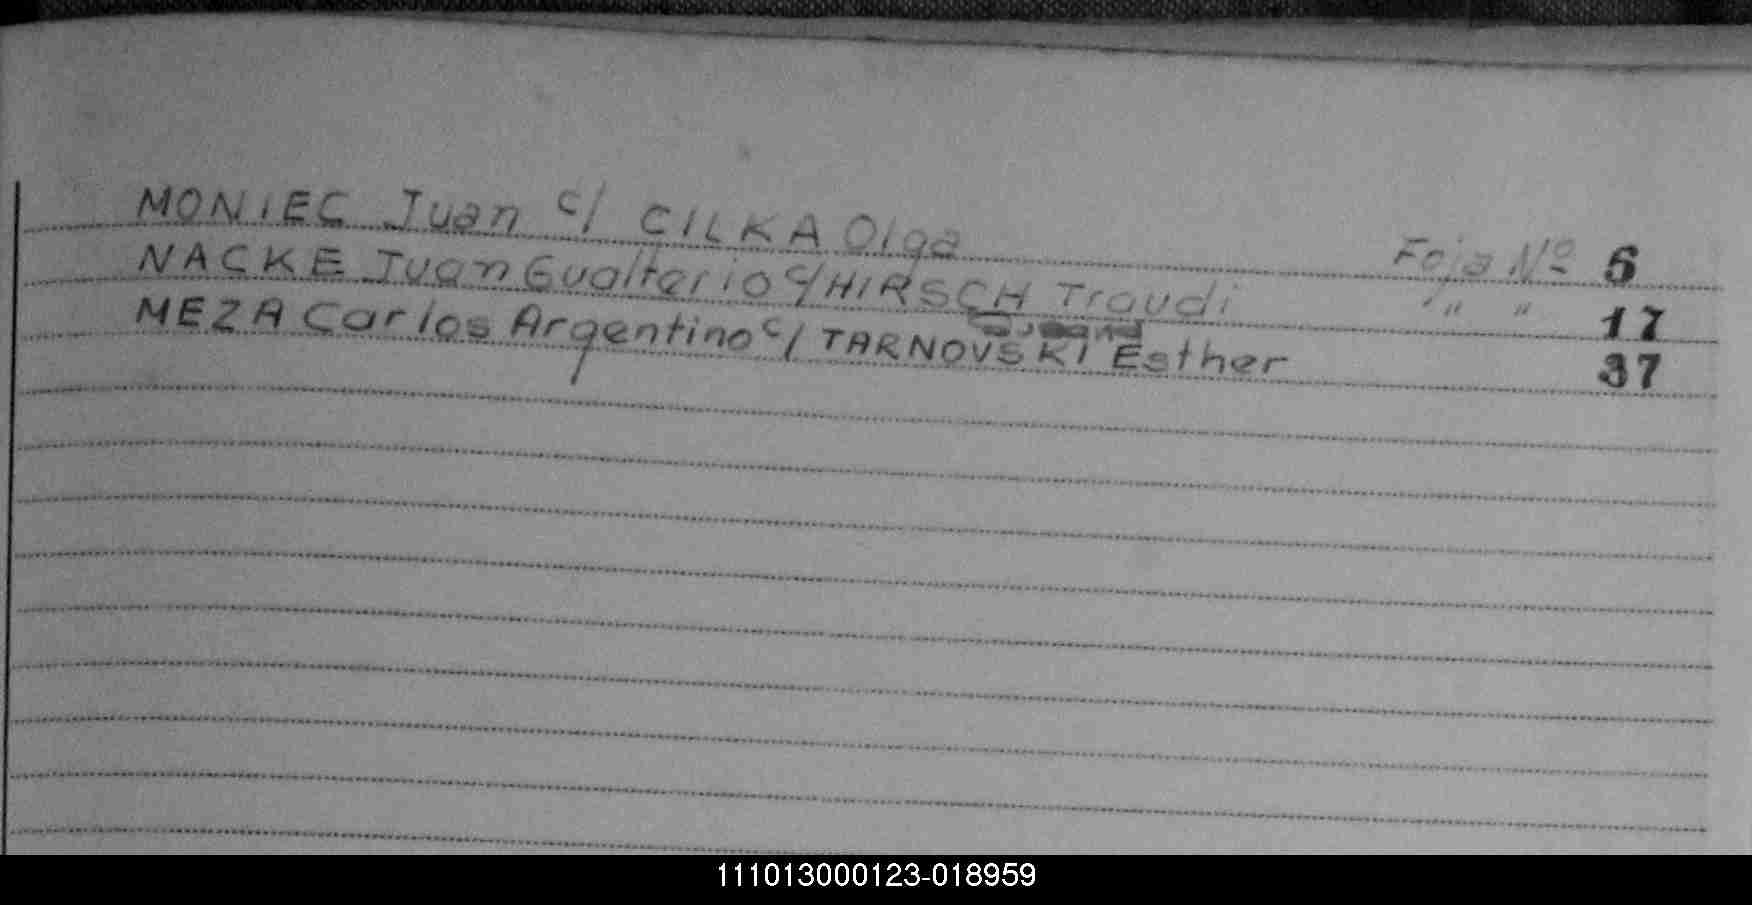 MONIEC Juan c/ CILKA Olga Foja Nº 6
NACKE Juan Gualterio c/ HIRSCH Traudi " " 17
MEZA Carlos Argentino c/ TARNOVSKI Esther 37
111013000123-018959